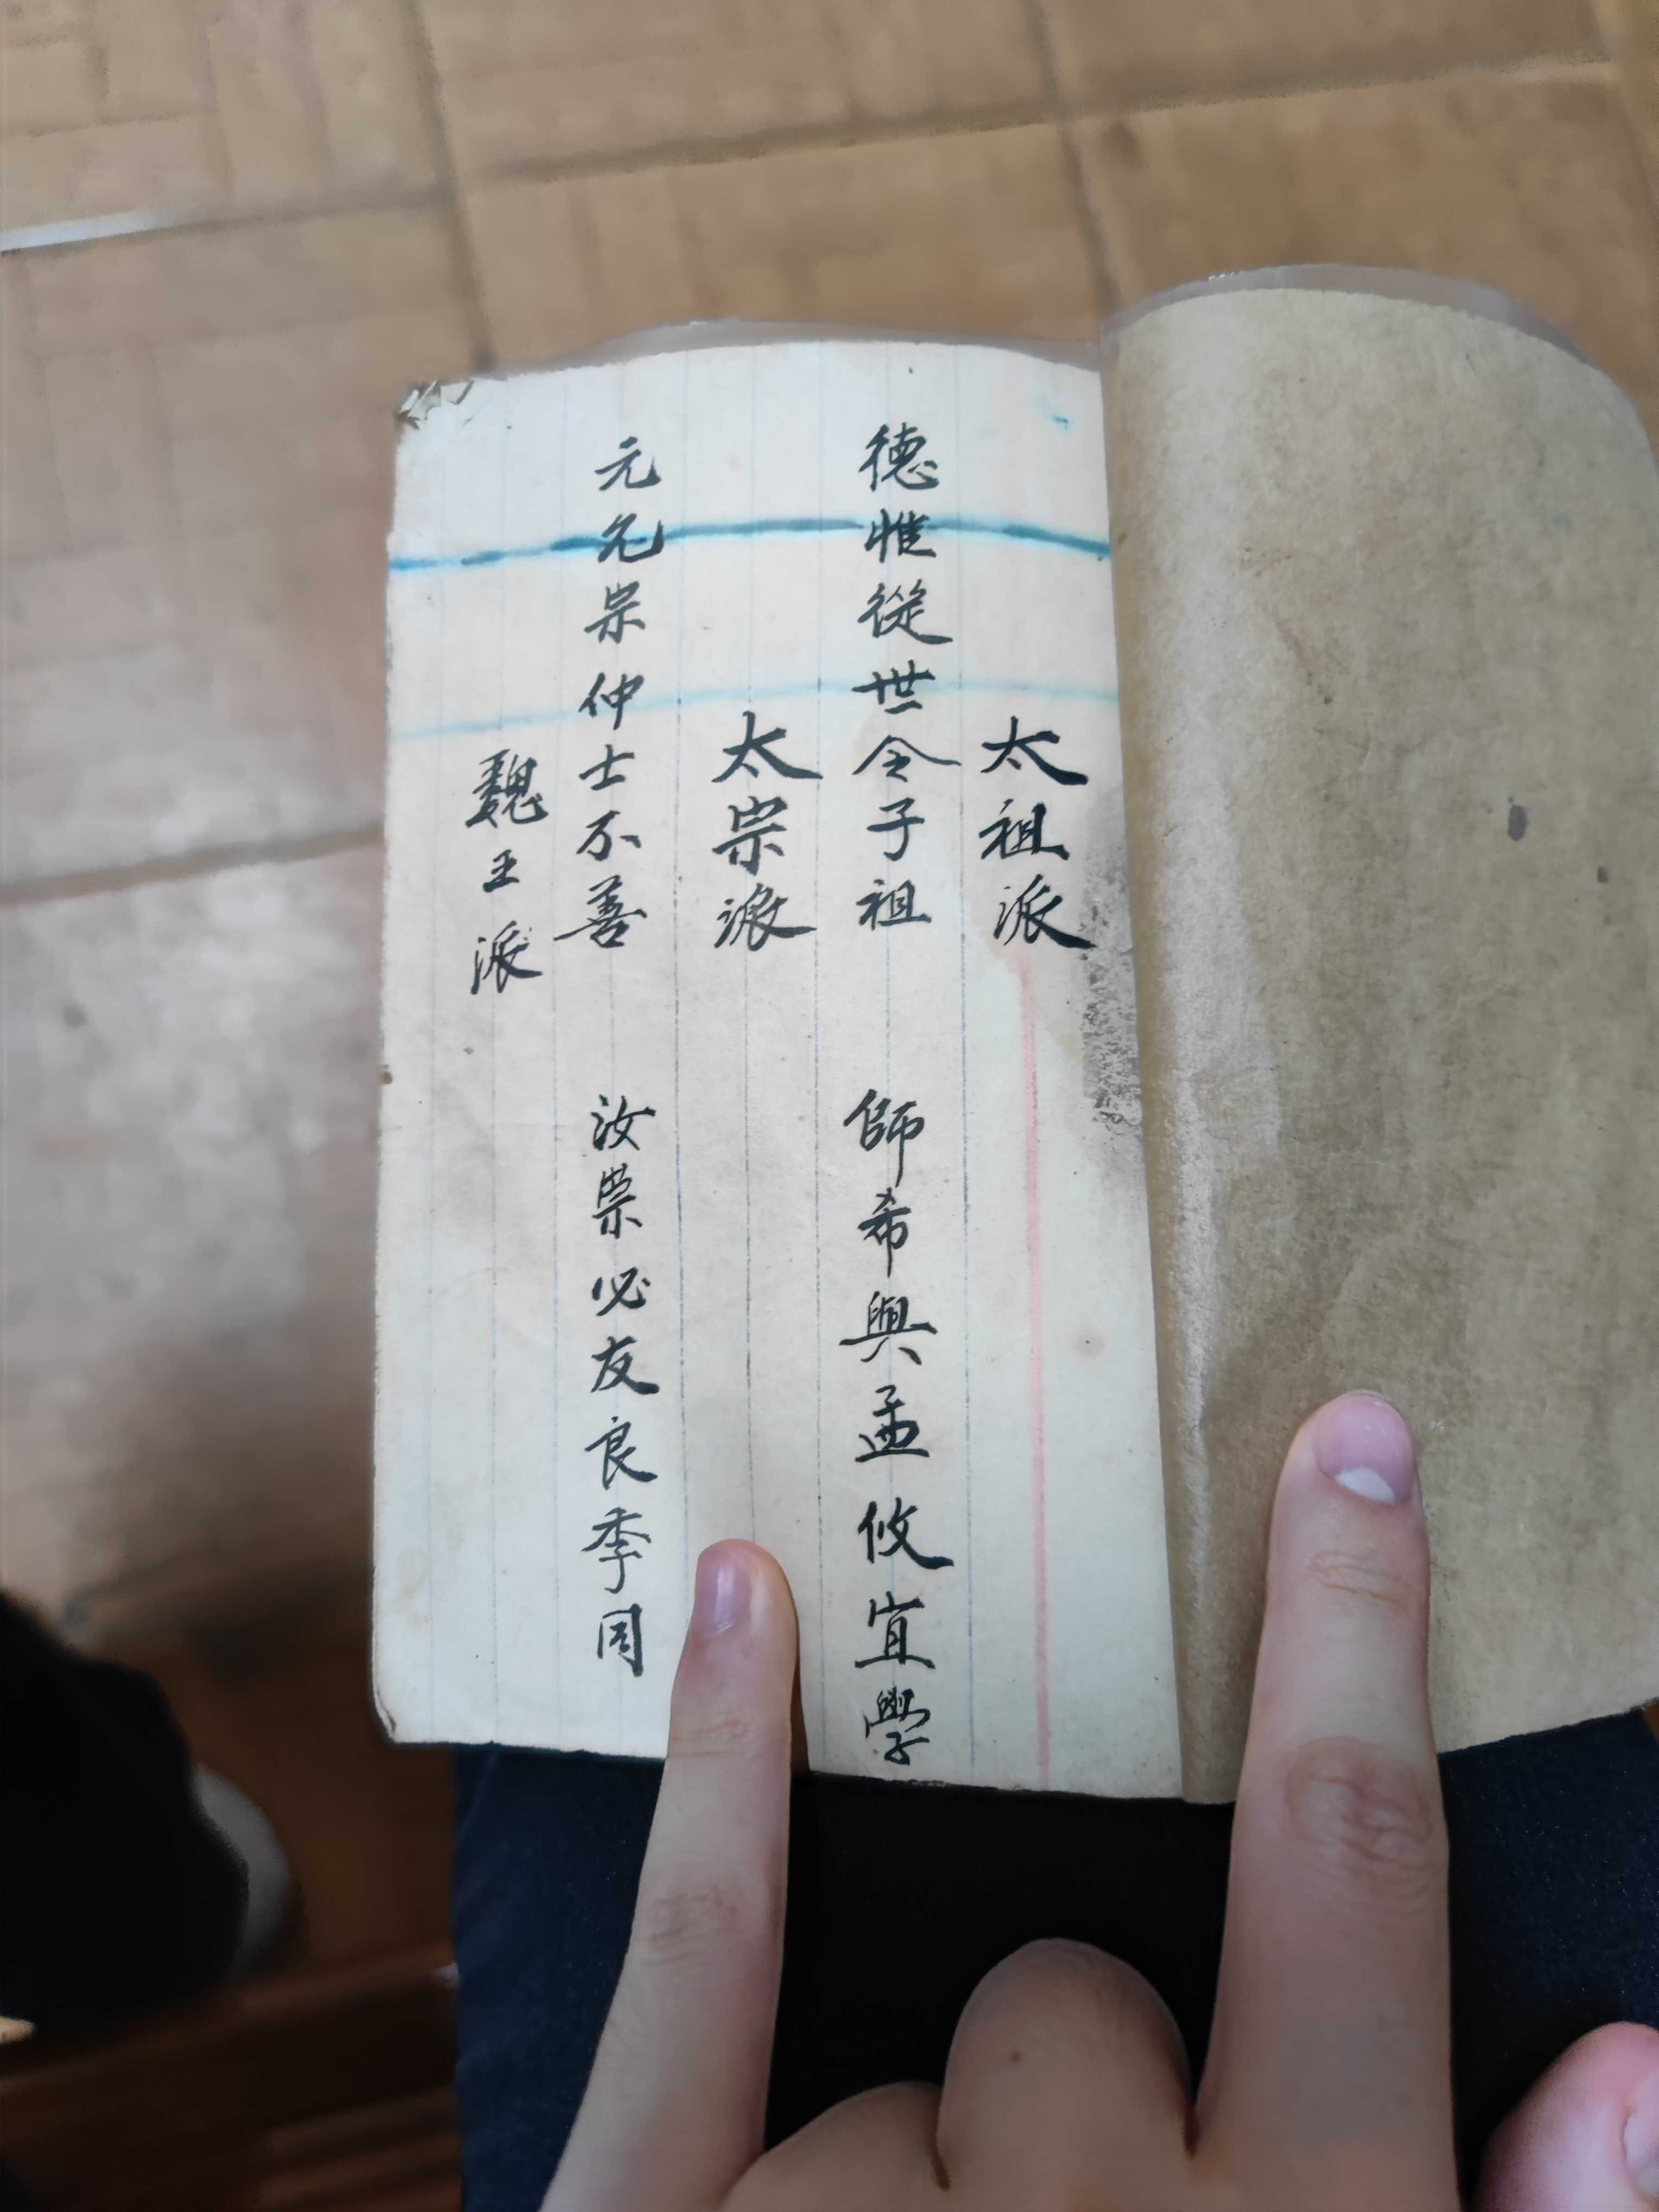 太祖派
德惟從世令子祖 師希與孟攸宜學
太宗派
元允宗仲士不善 汝崇必友良季同
魏王派